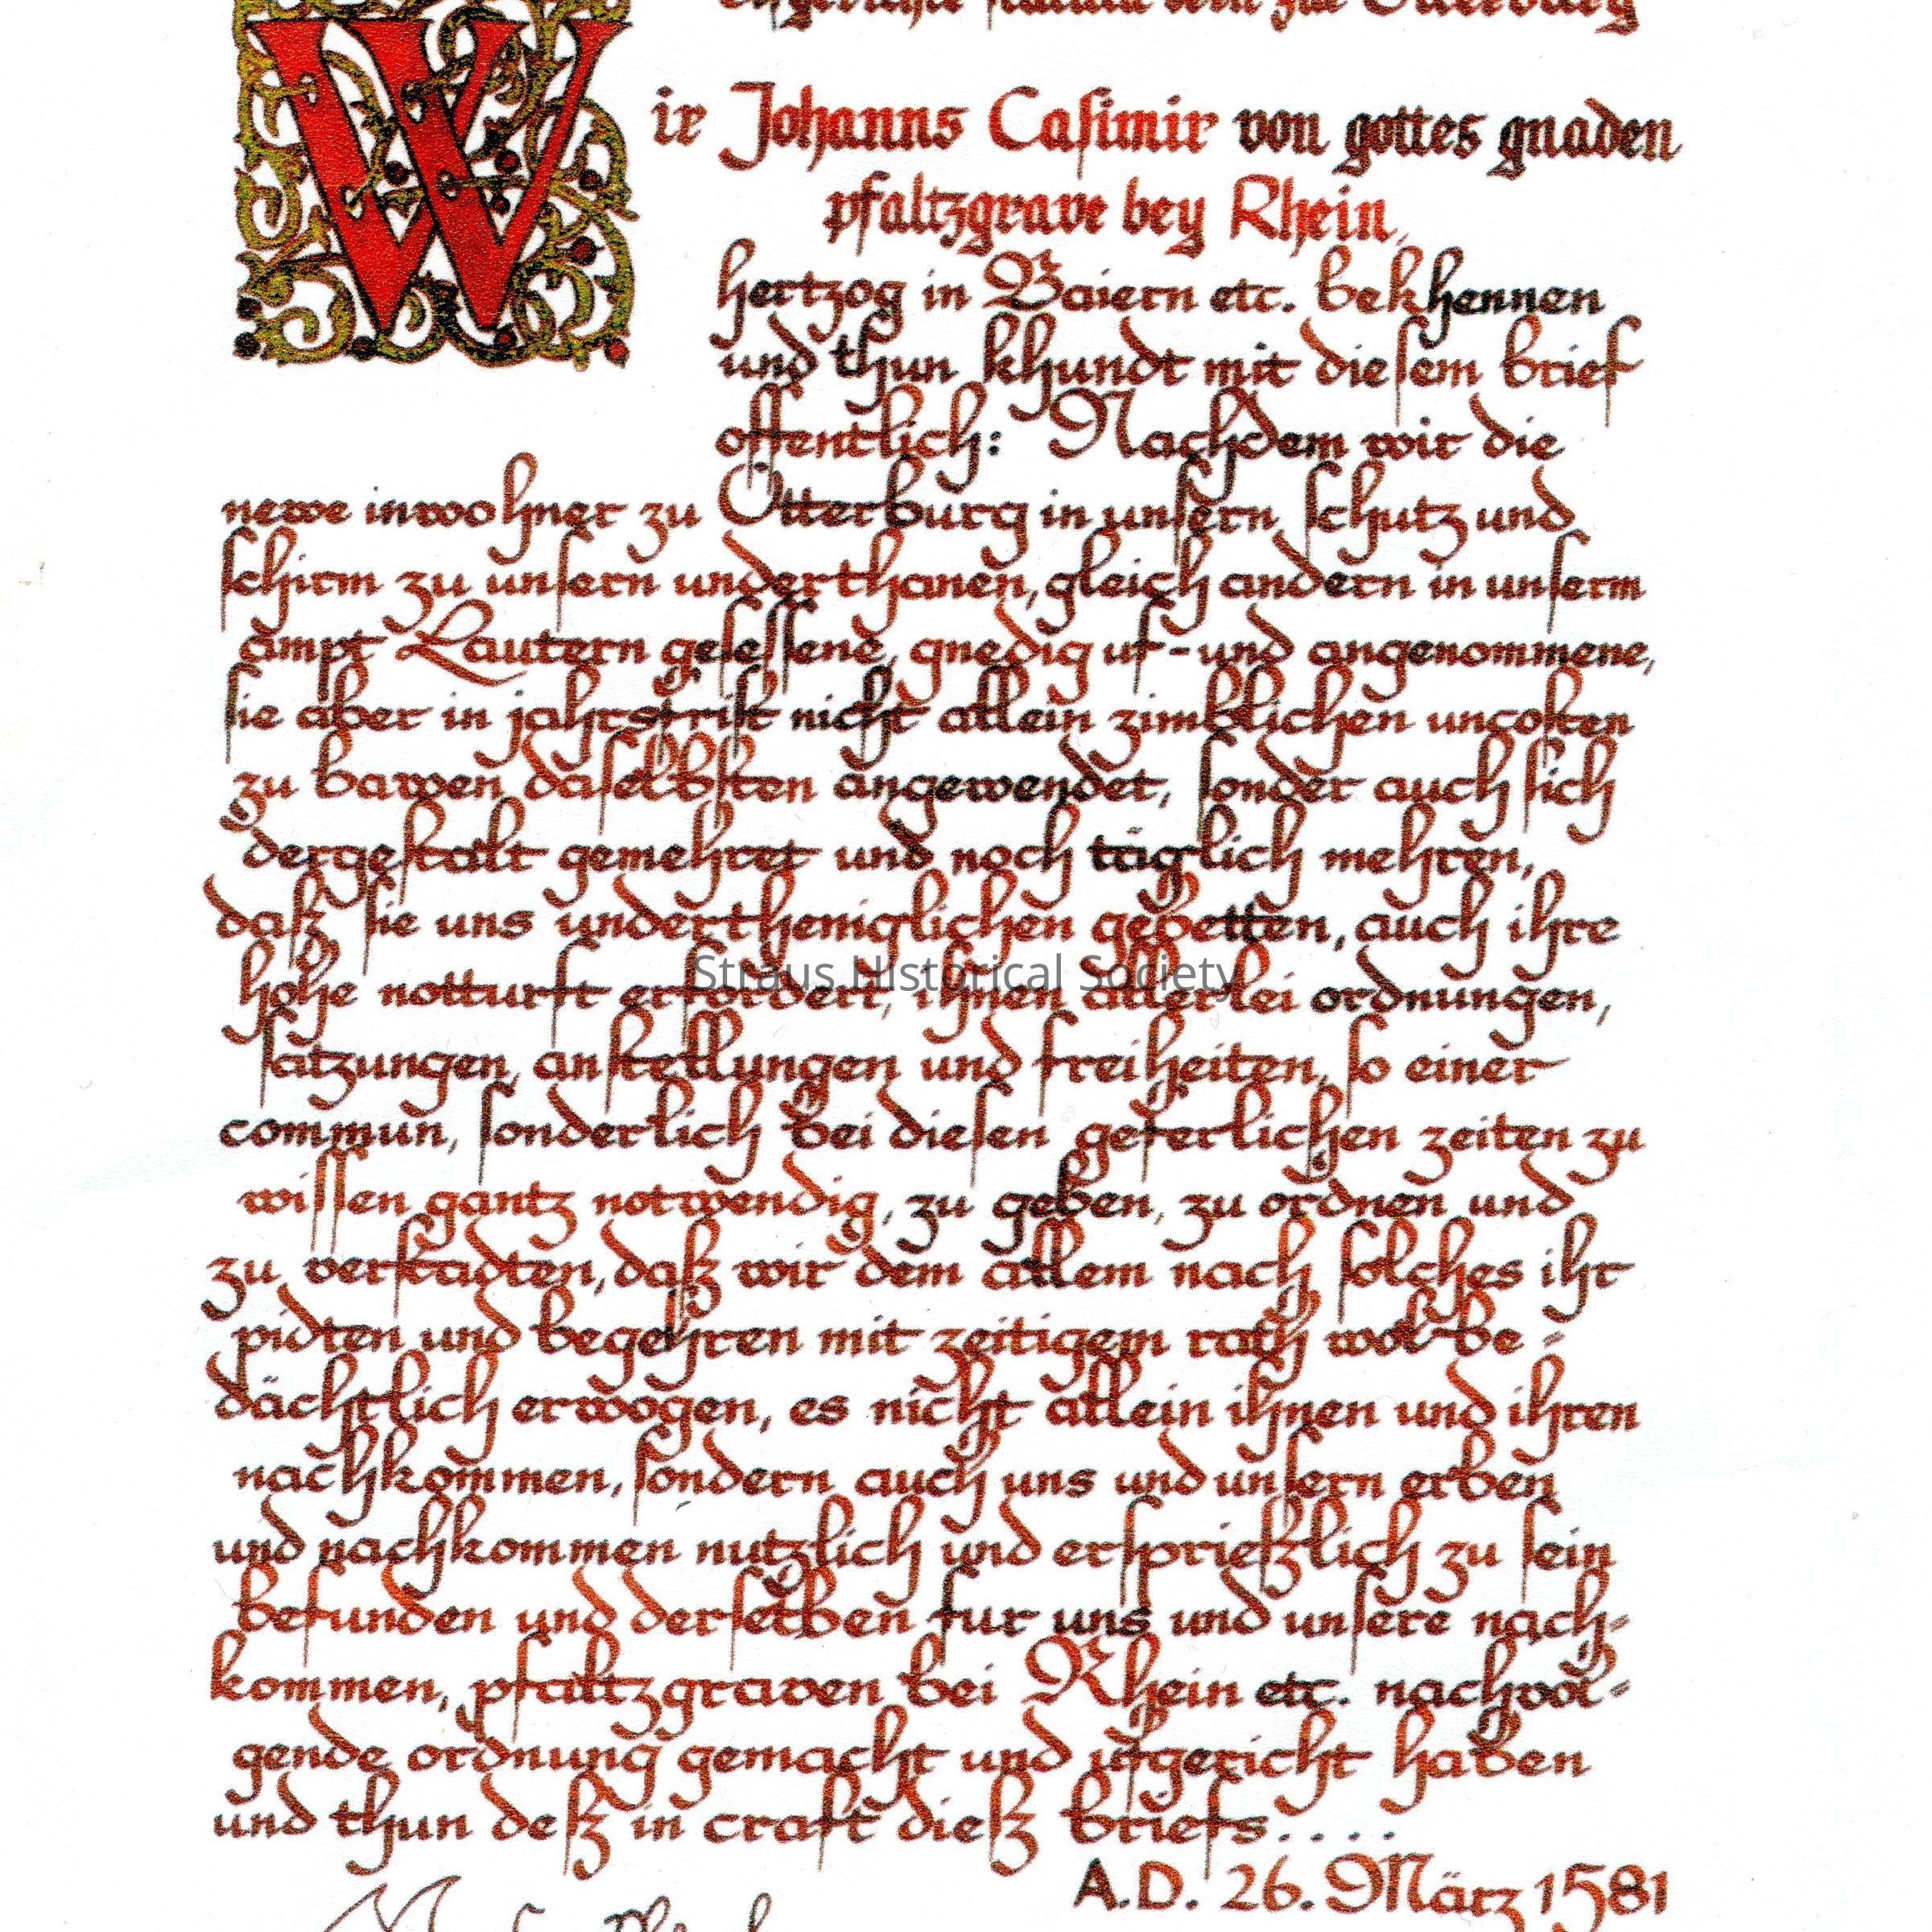 zur Otterburg
Wir Johanns Casimir von gottes gnaden
pfaltzgrave bey Rhein,
hertzog in Baiern etc. bekhennen
und thun khundt mit diesem brief
offentlich: Nachdem wir die
newe inwohner zu Otterburg in unsern schutz und
schirm zu unsern underthanen, gleich andern in unserm
ampt Lautern gesessene, gnedig uf- und angenommene,
sie aber in jahrsfrist nicht allein zimblichen uncosten
zu bawen daselbsten angewendet, sonder auch sich
dergestalt gemehret und noch täglich mehren,
daß sie uns undertheniglichen gebetten, auch ihre
hohe notturft erfordert, ihnen allerlei ordnungen,
Straus Historical Society
satzungen, anstellungen und freiheiten, so einer
commun, sonderlich bei diesen geferlichen zeiten zu
wissen gantz notwendig, zu geben, zu ordnen und
zu verstadten, daß wir dem allem nach solches ihr
pidten und begehren mit zeitigem rath wol be-
dächtlich erwogen, es nicht allein ihnen und ihren
nachkommen, sondern auch uns und unsern erben
und nachkommen nutzlich und ersprießlich zu sein
befunden und derselben fur uns und unsere nach-
kommen, pfaltzgraven bei Rhein etc. nachvol-
gende ordnung gemacht und ufgericht haben
und thun deß in craft dieß briefs....
A.D. 26. März 1581